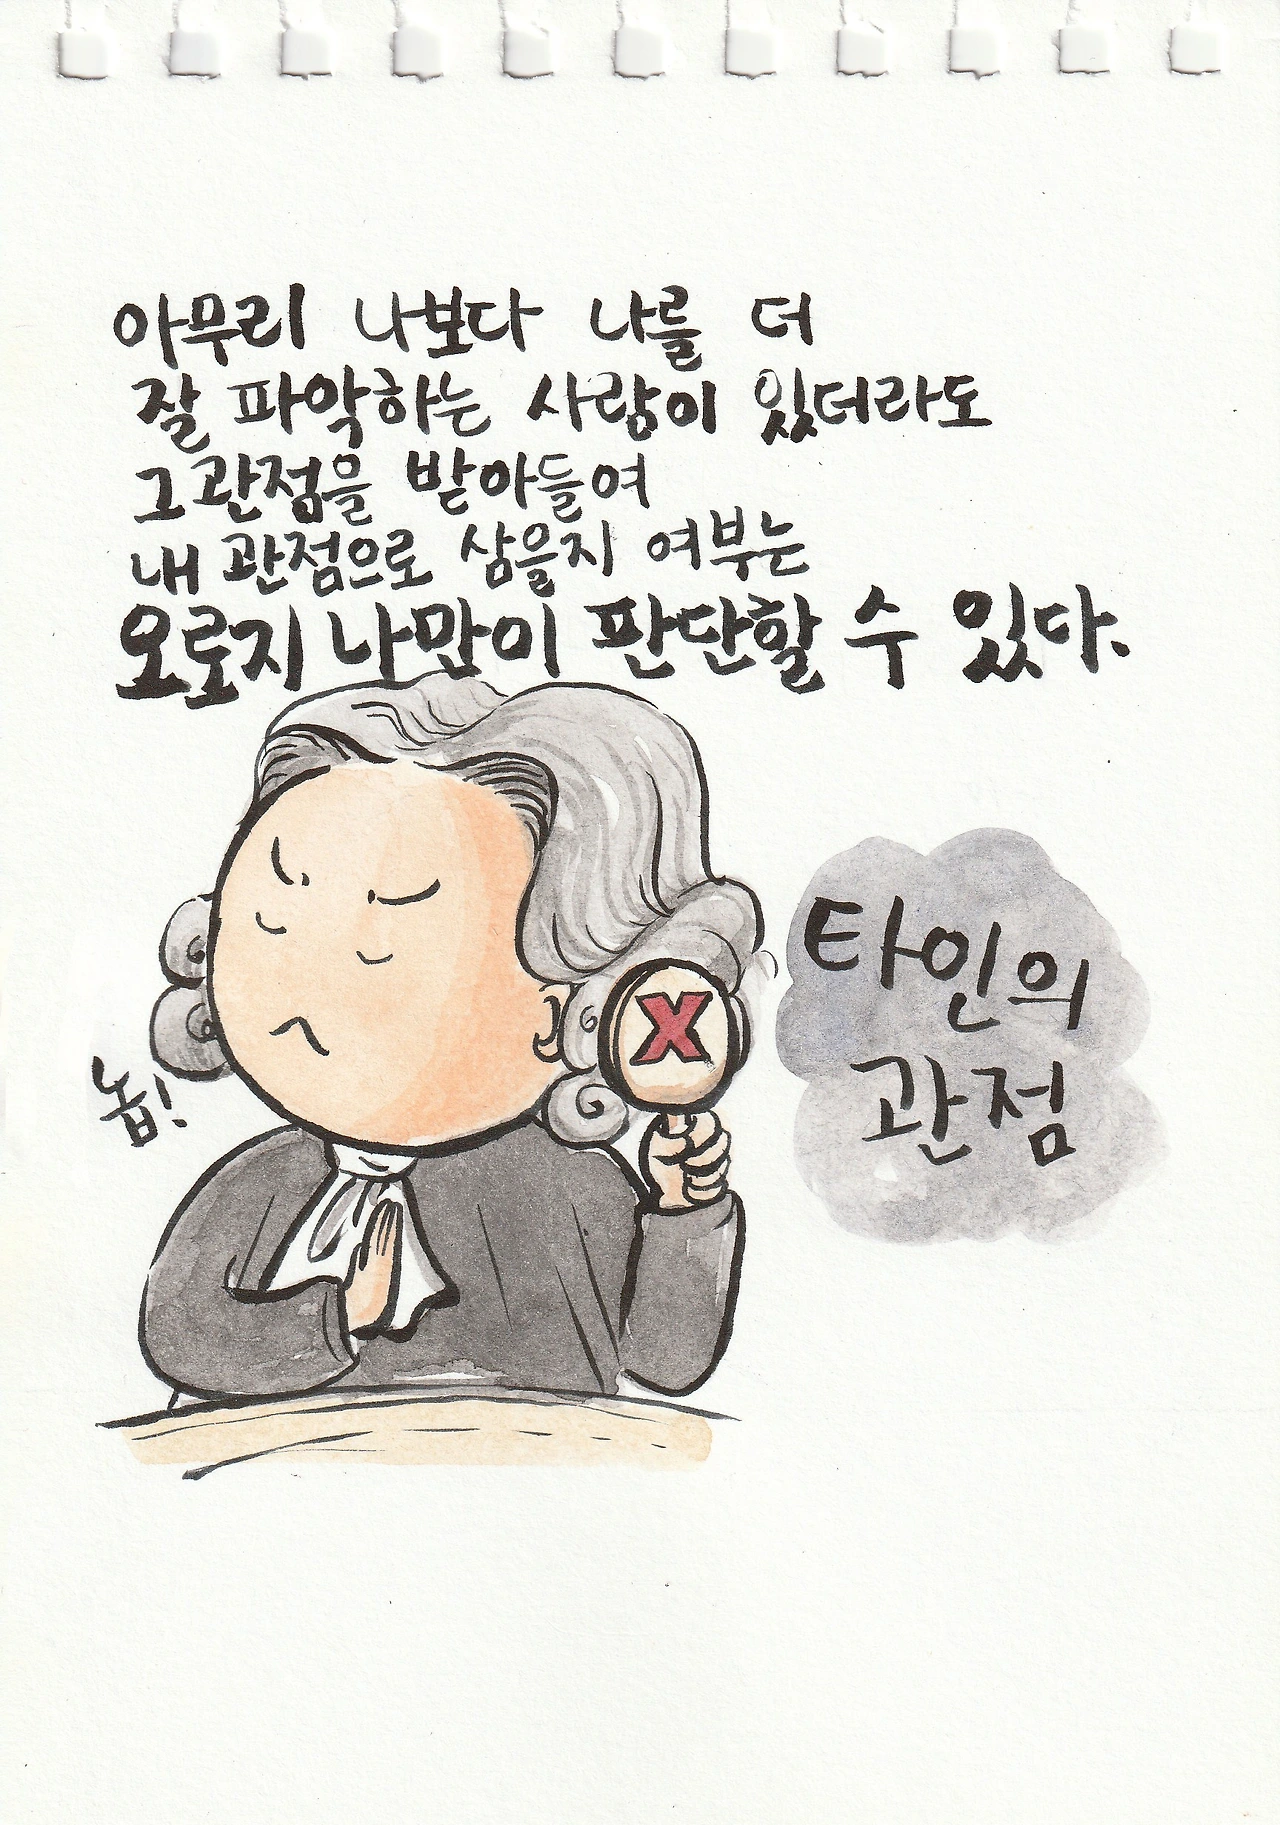 아무리 나보다 나를 더
잘 파악하는 사람이 있더라도
그 관점을 받아들여
내 관점으로 삼을지 여부는
오로지 나만이 판단할 수 있다.
타인의
관점
X
놉!